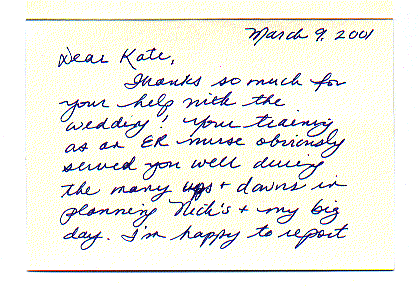 March 9, 2001
Dear Kate,
Thanks so much for
your help with the
wedding! Your training
as an ER nurse obviously
served you well during
the many ups + downs in
planning Nick's + my big
day. I'm happy to report